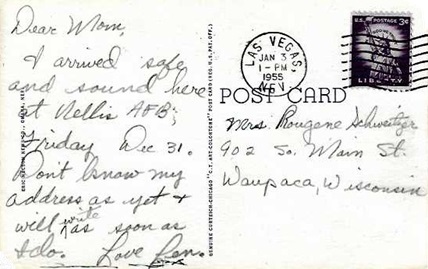 Dear Mom,
I arrived safe
and sound here
at Nellis AFB;
Friday Dec 31.
Don't know my
address as yet &
will write as soon as
I do. Love Len.
GENUINE CURTEICH-CHICAGO "C.T. ART-COLORTONE" POST CARD (REG. U.S. PAT. OFF.)
LAS VEGAS,
JAN 3
1 - PM
1955
NEV.
U.S. POSTAGE 3¢
LIBERTY
POST CARD
Mrs Rougene Schweitzer
902 So. Main St.
Waupaca, Wisconsin